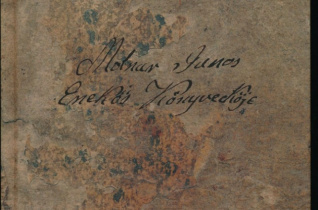 Molnar Janos
Enekös Könyvecköje